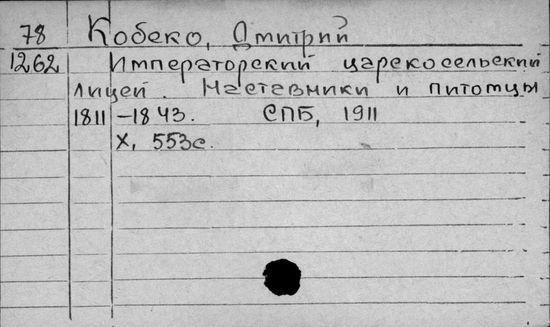 78 Кобеко, Дмитрий
1262 Императорский царскосельский
лицей. Наставники и питомцы
1811 – 1843. СПБ, 1911
X, 553с.